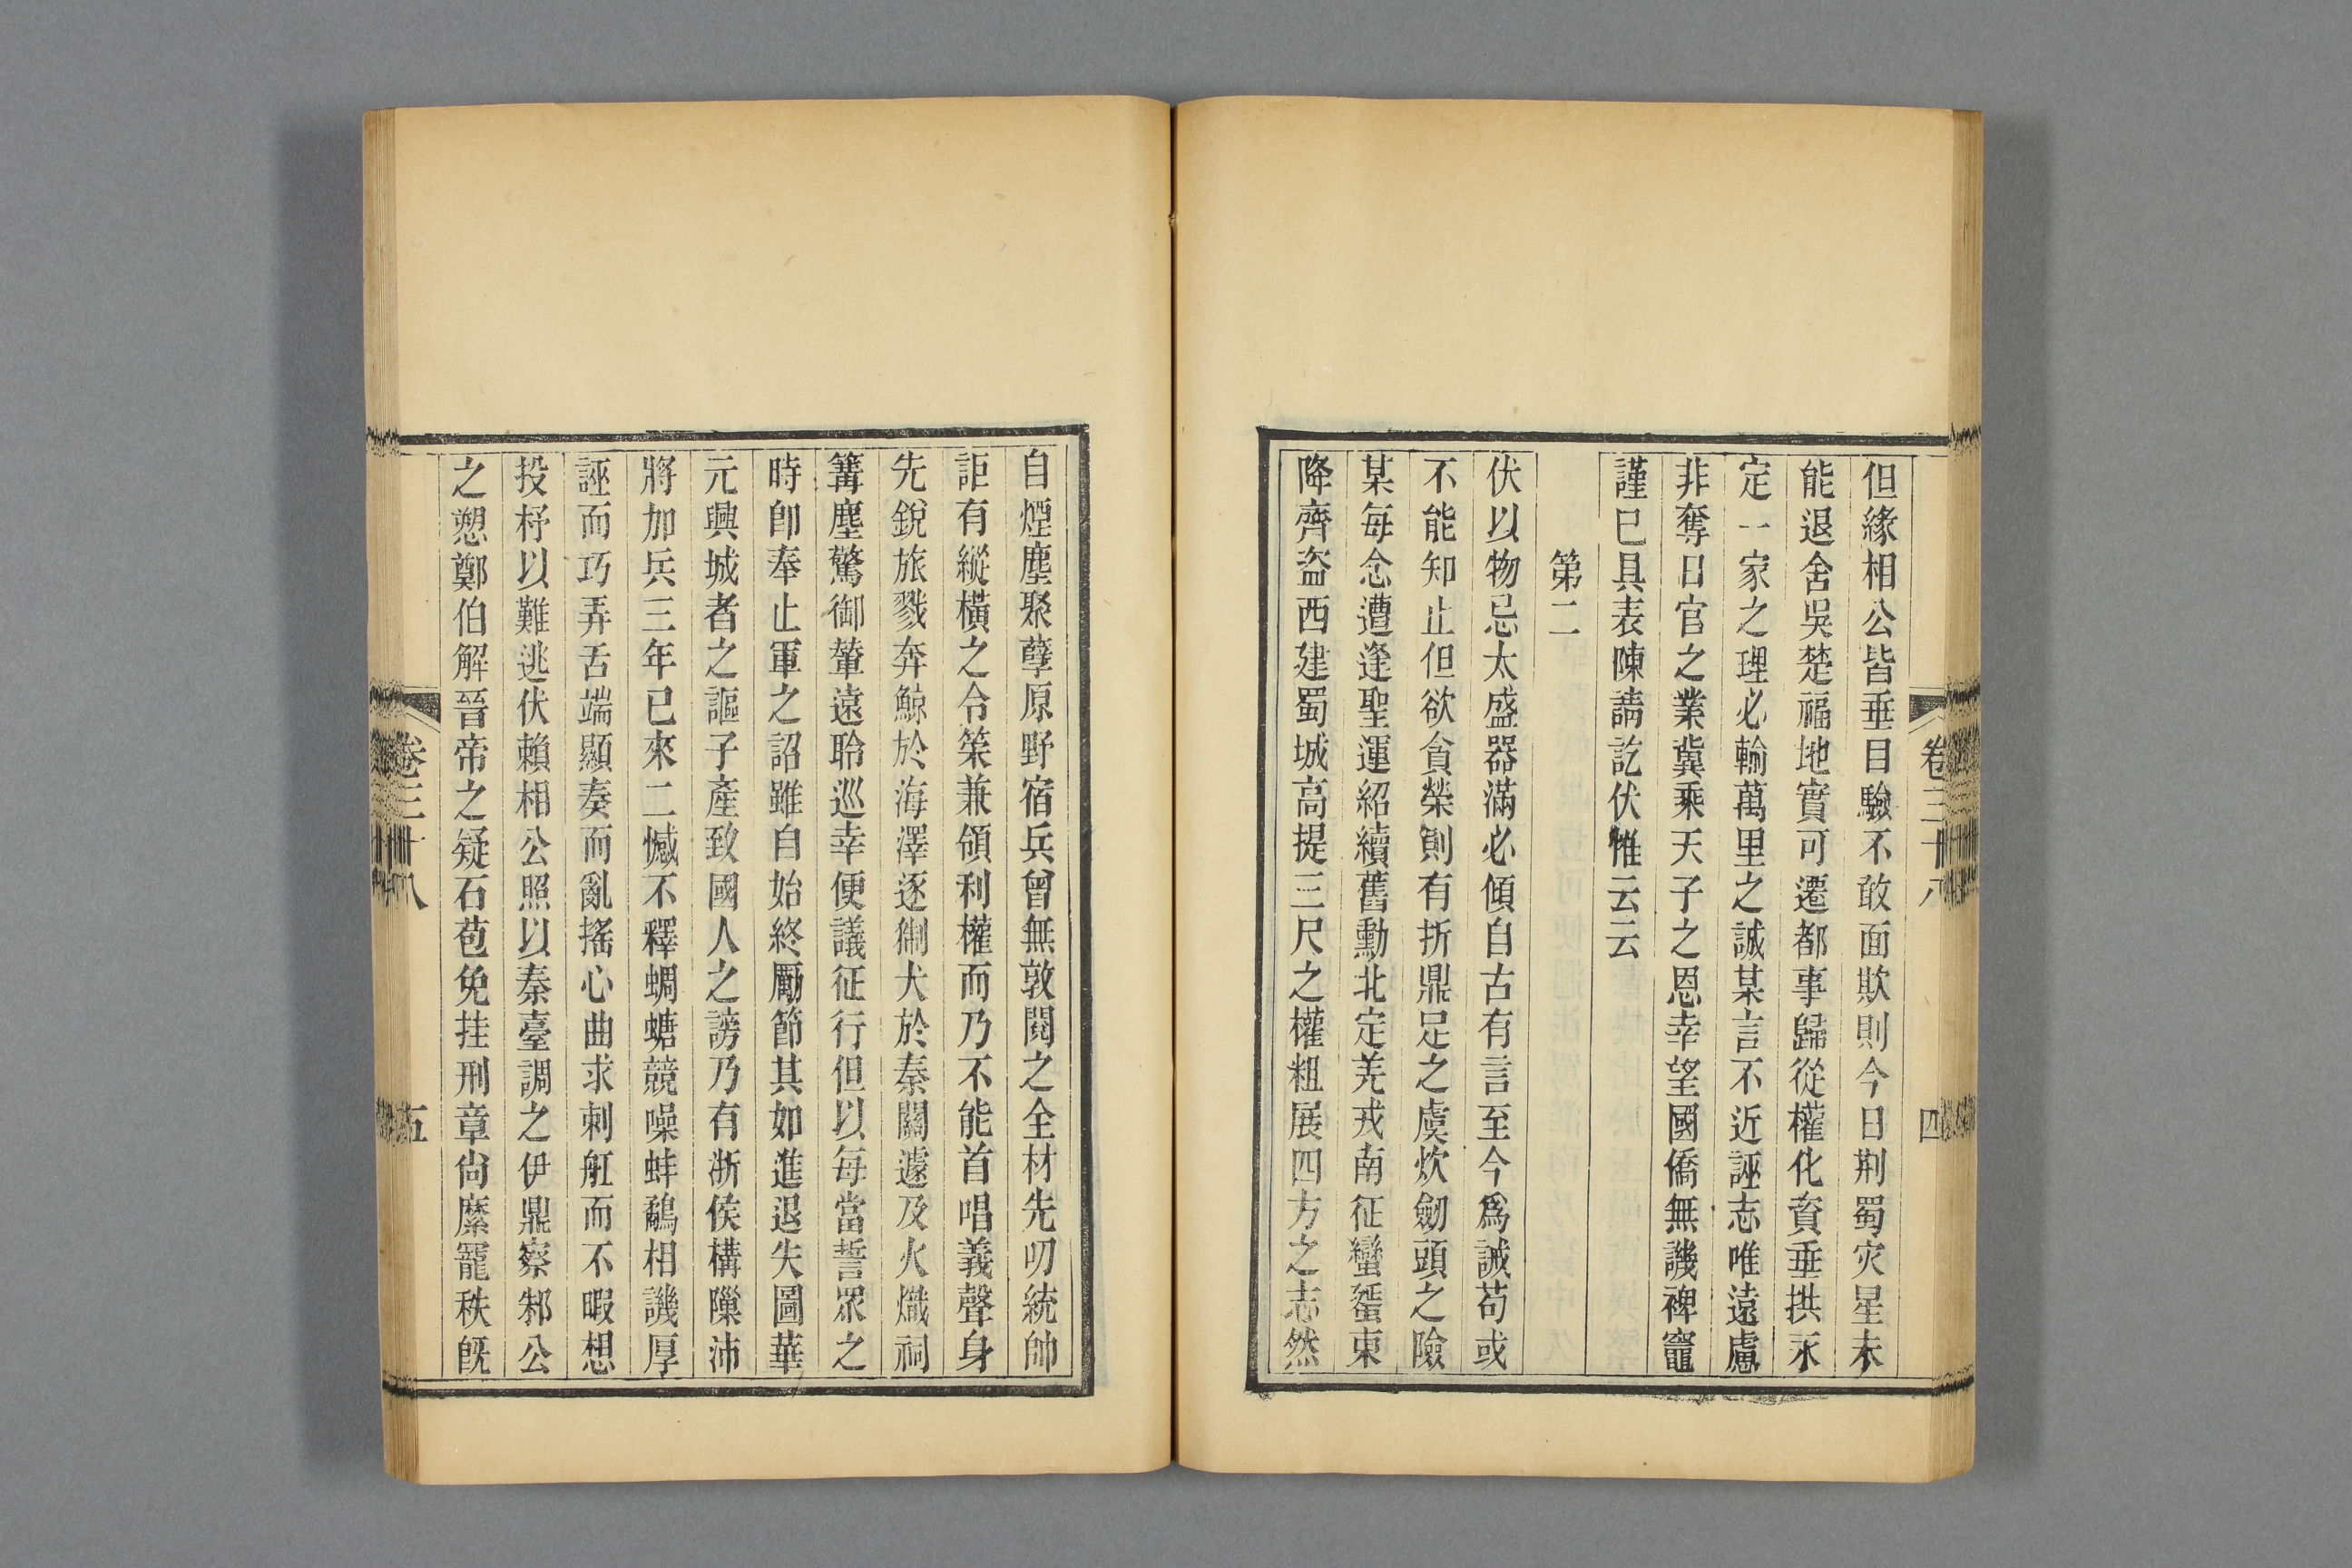 卷三十八
四
但緣相公皆垂目驗不敢面欺則今日荆蜀灾星未
能退舍吳楚福地實可遷都事歸從權化資垂拱永
定一家之理必輸萬里之誠某言不近誣志唯遠慮
非奪日官之業冀乘天子之恩幸望國僑無譏裨竈
謹已具表陳請訖伏惟云云
第二
伏以物忌太盛器滿必傾自古有言至今爲誡苟或
不能知止但欲貪榮則有折鼎足之虞炊劒頭之險
某每念遭逢聖運紹續舊勳北定羌戎南征蠻蜑東
降齊盜西建蜀城高提三尺之權粗展四方之志然
自煙塵聚孽原野宿兵曾無敦閱之全材先叨統帥
詎有縱橫之令筞兼領利權而乃不能首唱義聲身
先銳旅戮奔鯨於海澤逐猘犬於秦關遽及火熾祠
篝塵驚御輦遠聆巡幸便議征行但以每當誓眾之
時卽奉止軍之詔雖自始終勵節其如進退失圖華
元興城者之謳子產致國人之謗乃有浙侯構隟沛
將加兵三年已來二憾不釋蜩螗競噪蚌鷸相譏厚
誣而巧弄舌端顯奏而亂搖心曲求刺舡而不暇想
投杼以難逃伏賴相公照以秦臺調之伊鼎察邾公
之愬鄭伯解晉帝之疑石苞免挂刑章尙縻寵秩旣
卷三十八
五